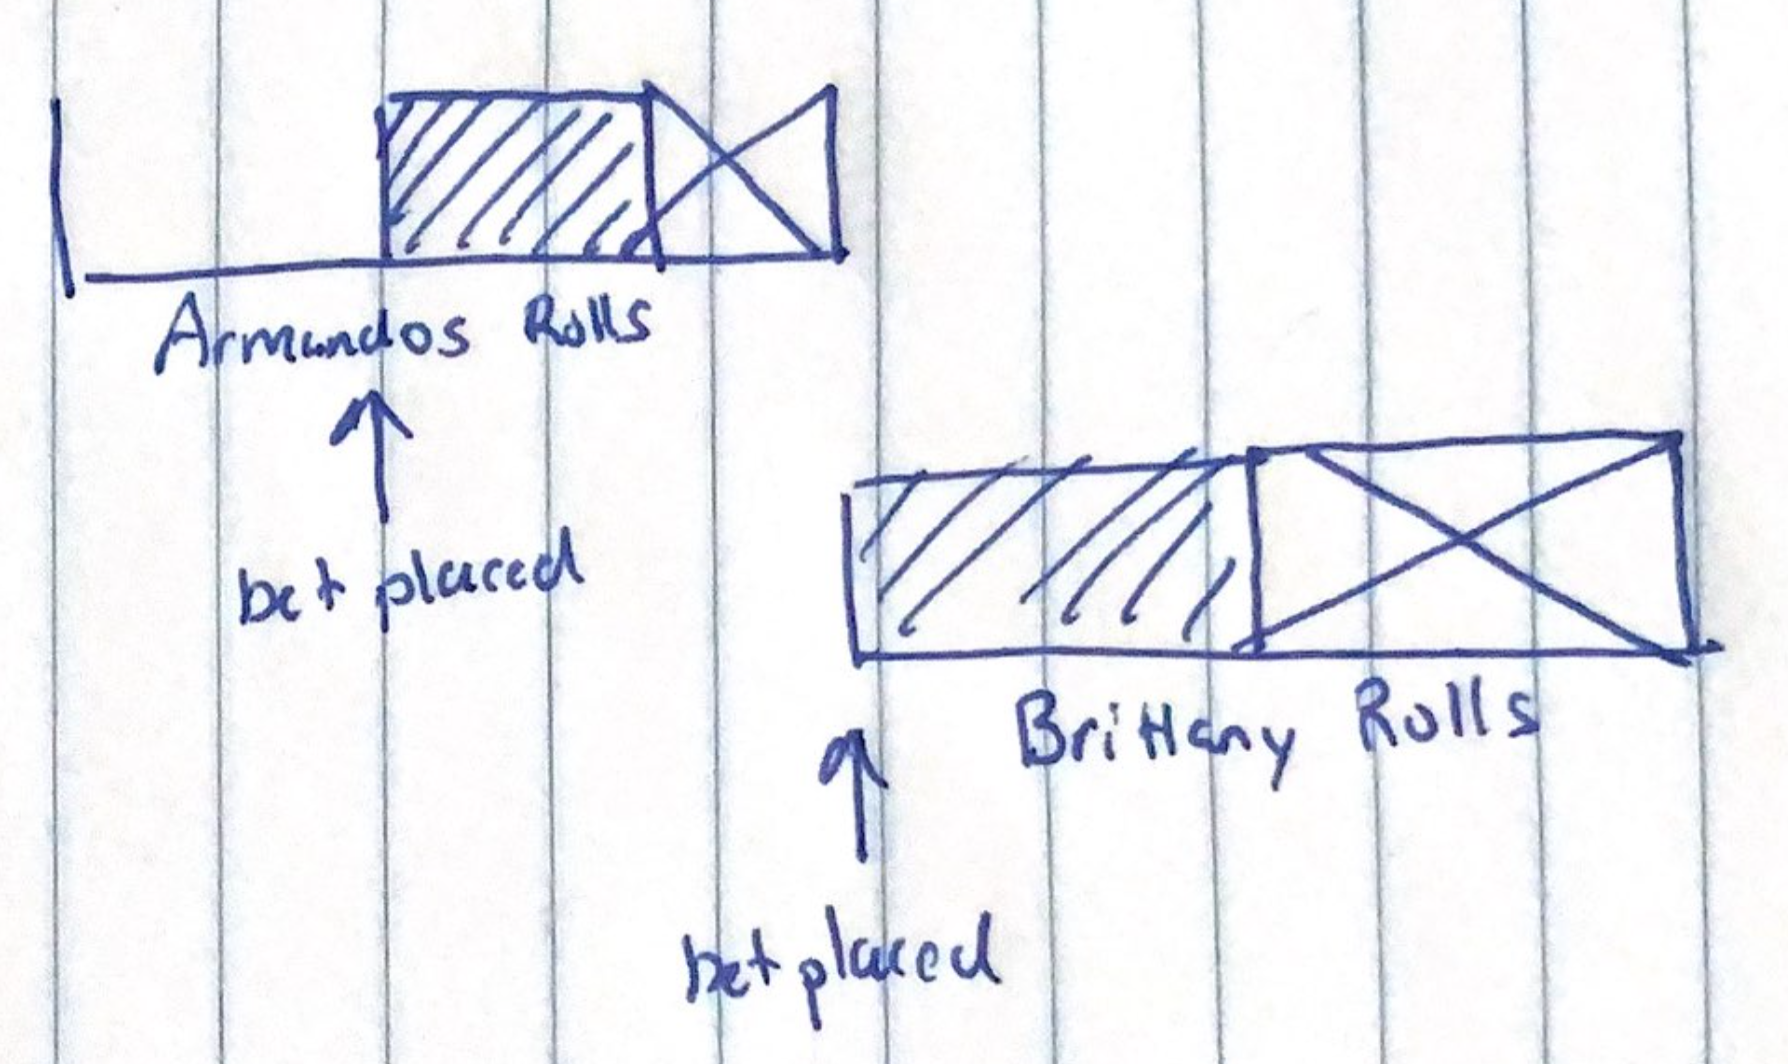 Armandos Rolls
bet placed
Brittany Rolls
bet placed